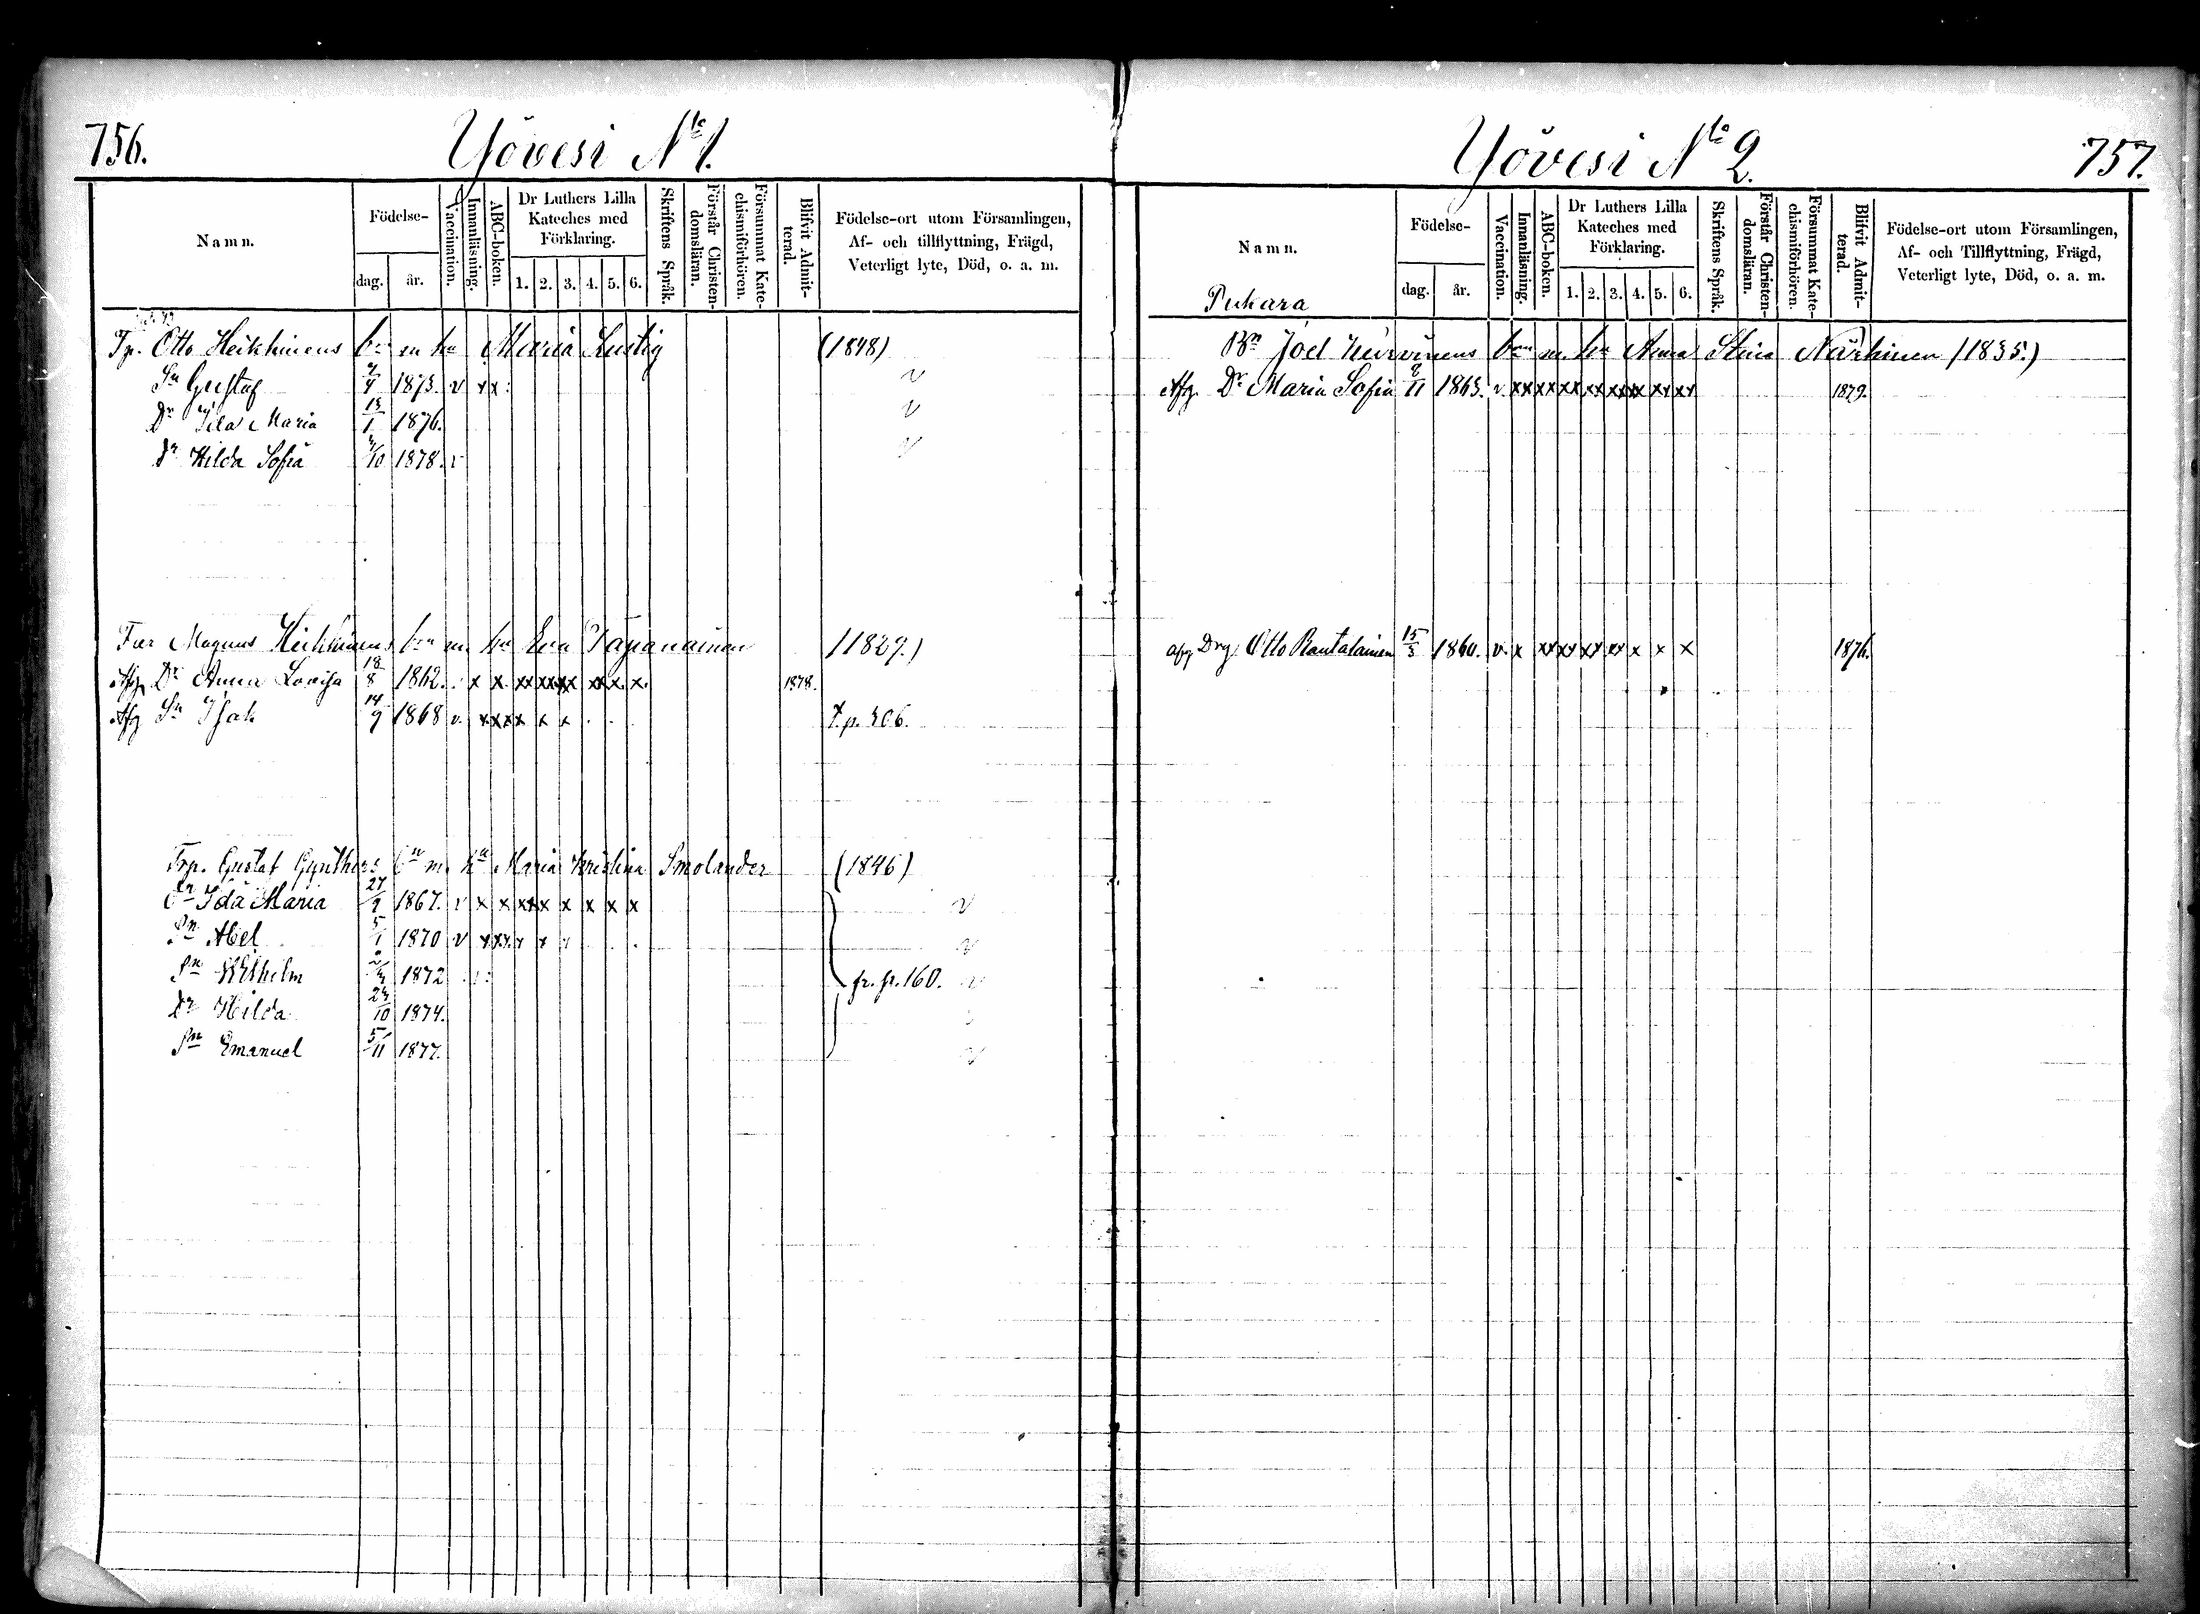 756.
Yövesi No 1.
Namn.
Födelse-
dag.
år.
Vaccination.
Innanläsning.
ABC-boken.
Dr Luthers Lilla Kateches med Förklaring.
1. 2. 3. 4. 5. 6.
Skriftens Språk.
Förstår Christendomsläran.
Försummat Katechismiförhören.
Blifvit Admitterad.
Födelse-ort utom Församlingen,
Af- och tillflyttning, Frägd,
Veterligt lyte, Död, o. a. m.
Tp. Otto Heikkinens bn m hu Maria Lustig (1848)
Sn Gustaf 1873. v x x v
Dr Ida Maria 13/1 1876. v
Dr Hilda Sofia 1878. v v
Magnus Heikkinens bn m. hu Eva Tapanainen (1829.)
Afg Dr Anna Lovisa 18/8 1862. x x xx xx xx xx x x. 1878.
Afg Sn Isak 14/9 1868 v. x xx x x x
Trp. Gustaf Gynthers bn m. hu Maria Kristina Smolander (1846)
Dr Ida Maria 27/9 1867. v x x xx x x x x x v
Sn Abel 5/1 1870 v v
Sn Wilhelm 1872 fr. p. 160. v
Dr Hilda 1874.
Sn Emanuel 5/11 1877. v
Yövesi No 2.
757.
Namn.
Födelse-
dag.
år.
Vaccination.
Innanläsning.
ABC-boken.
Dr Luthers Lilla Kateches med Förklaring.
1. 2. 3. 4. 5. 6.
Skriftens Språk.
Förstår Christendomsläran.
Försummat Katechismiförhören.
Blifvit Admitterad.
Födelse-ort utom Församlingen,
Af- och Tillflyttning, Frägd,
Veterligt lyte, Död, o. a. m.
Pukara
Bn Joel m. hu Anna Stina Närhinen (1835.)
Afg. Dr Maria Sofia 1863. v. xx xx xx xx xx xx xx xx 1879.
afg Drg. Otto Rautalainen 15/3 1860. v. x xx xx xx xx x x x 1876.